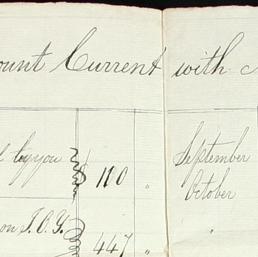 ount Current with
by you $110 " September
October
on I.O.Y. 447 "